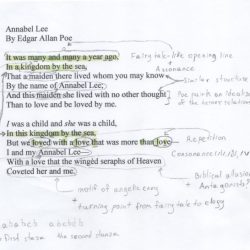 Annabel Lee
By Edgar Allan Poe
It was many and many a year ago,
In a kingdom by the sea,
That a maiden there lived whom you may know
By the name of Annabel Lee;
And this maiden she lived with no other thought
Than to love and be loved by me.
I was a child and she was a child,
In this kingdom by the sea,
But we loved with a love that was more than love
I and my Annabel Lee
With a love that the winged seraphs of Heaven
Coveted her and me.
Fairy tale-like opening line
Assonance
Similar structure
Poe
on
Repetition
Consonance
Biblical allusion
Antagonists?
motif of angelic envy
turning point from fairy tale to elegy
ababcb abcbdb
first
the second